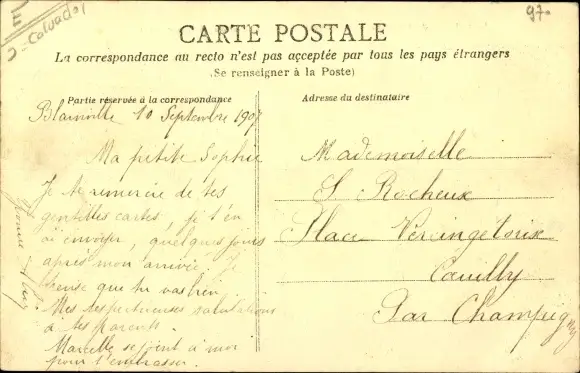 J - Calvados
97.
CARTE POSTALE
La correspondance au recto n'est pas acceptée par tous les pays étrangers
(Se renseigner à la Poste)
Partie réservée à la correspondance
Blainville 10 Septembre 1907
Ma petite Sophie
Je te remercie de tes
gentilles cartes, je t'en
ai envoyer, quelques jours
après mon arrivée. Je
pense que tu vas bien
Mes respectueuses salutations
à tes parents.
Marcelle se joint à moi
pour t'embrasser.
Adresse du destinataire
Mademoiselle
S Rocheux
Place Vercingetorix
Cœuilly
Par Champigny